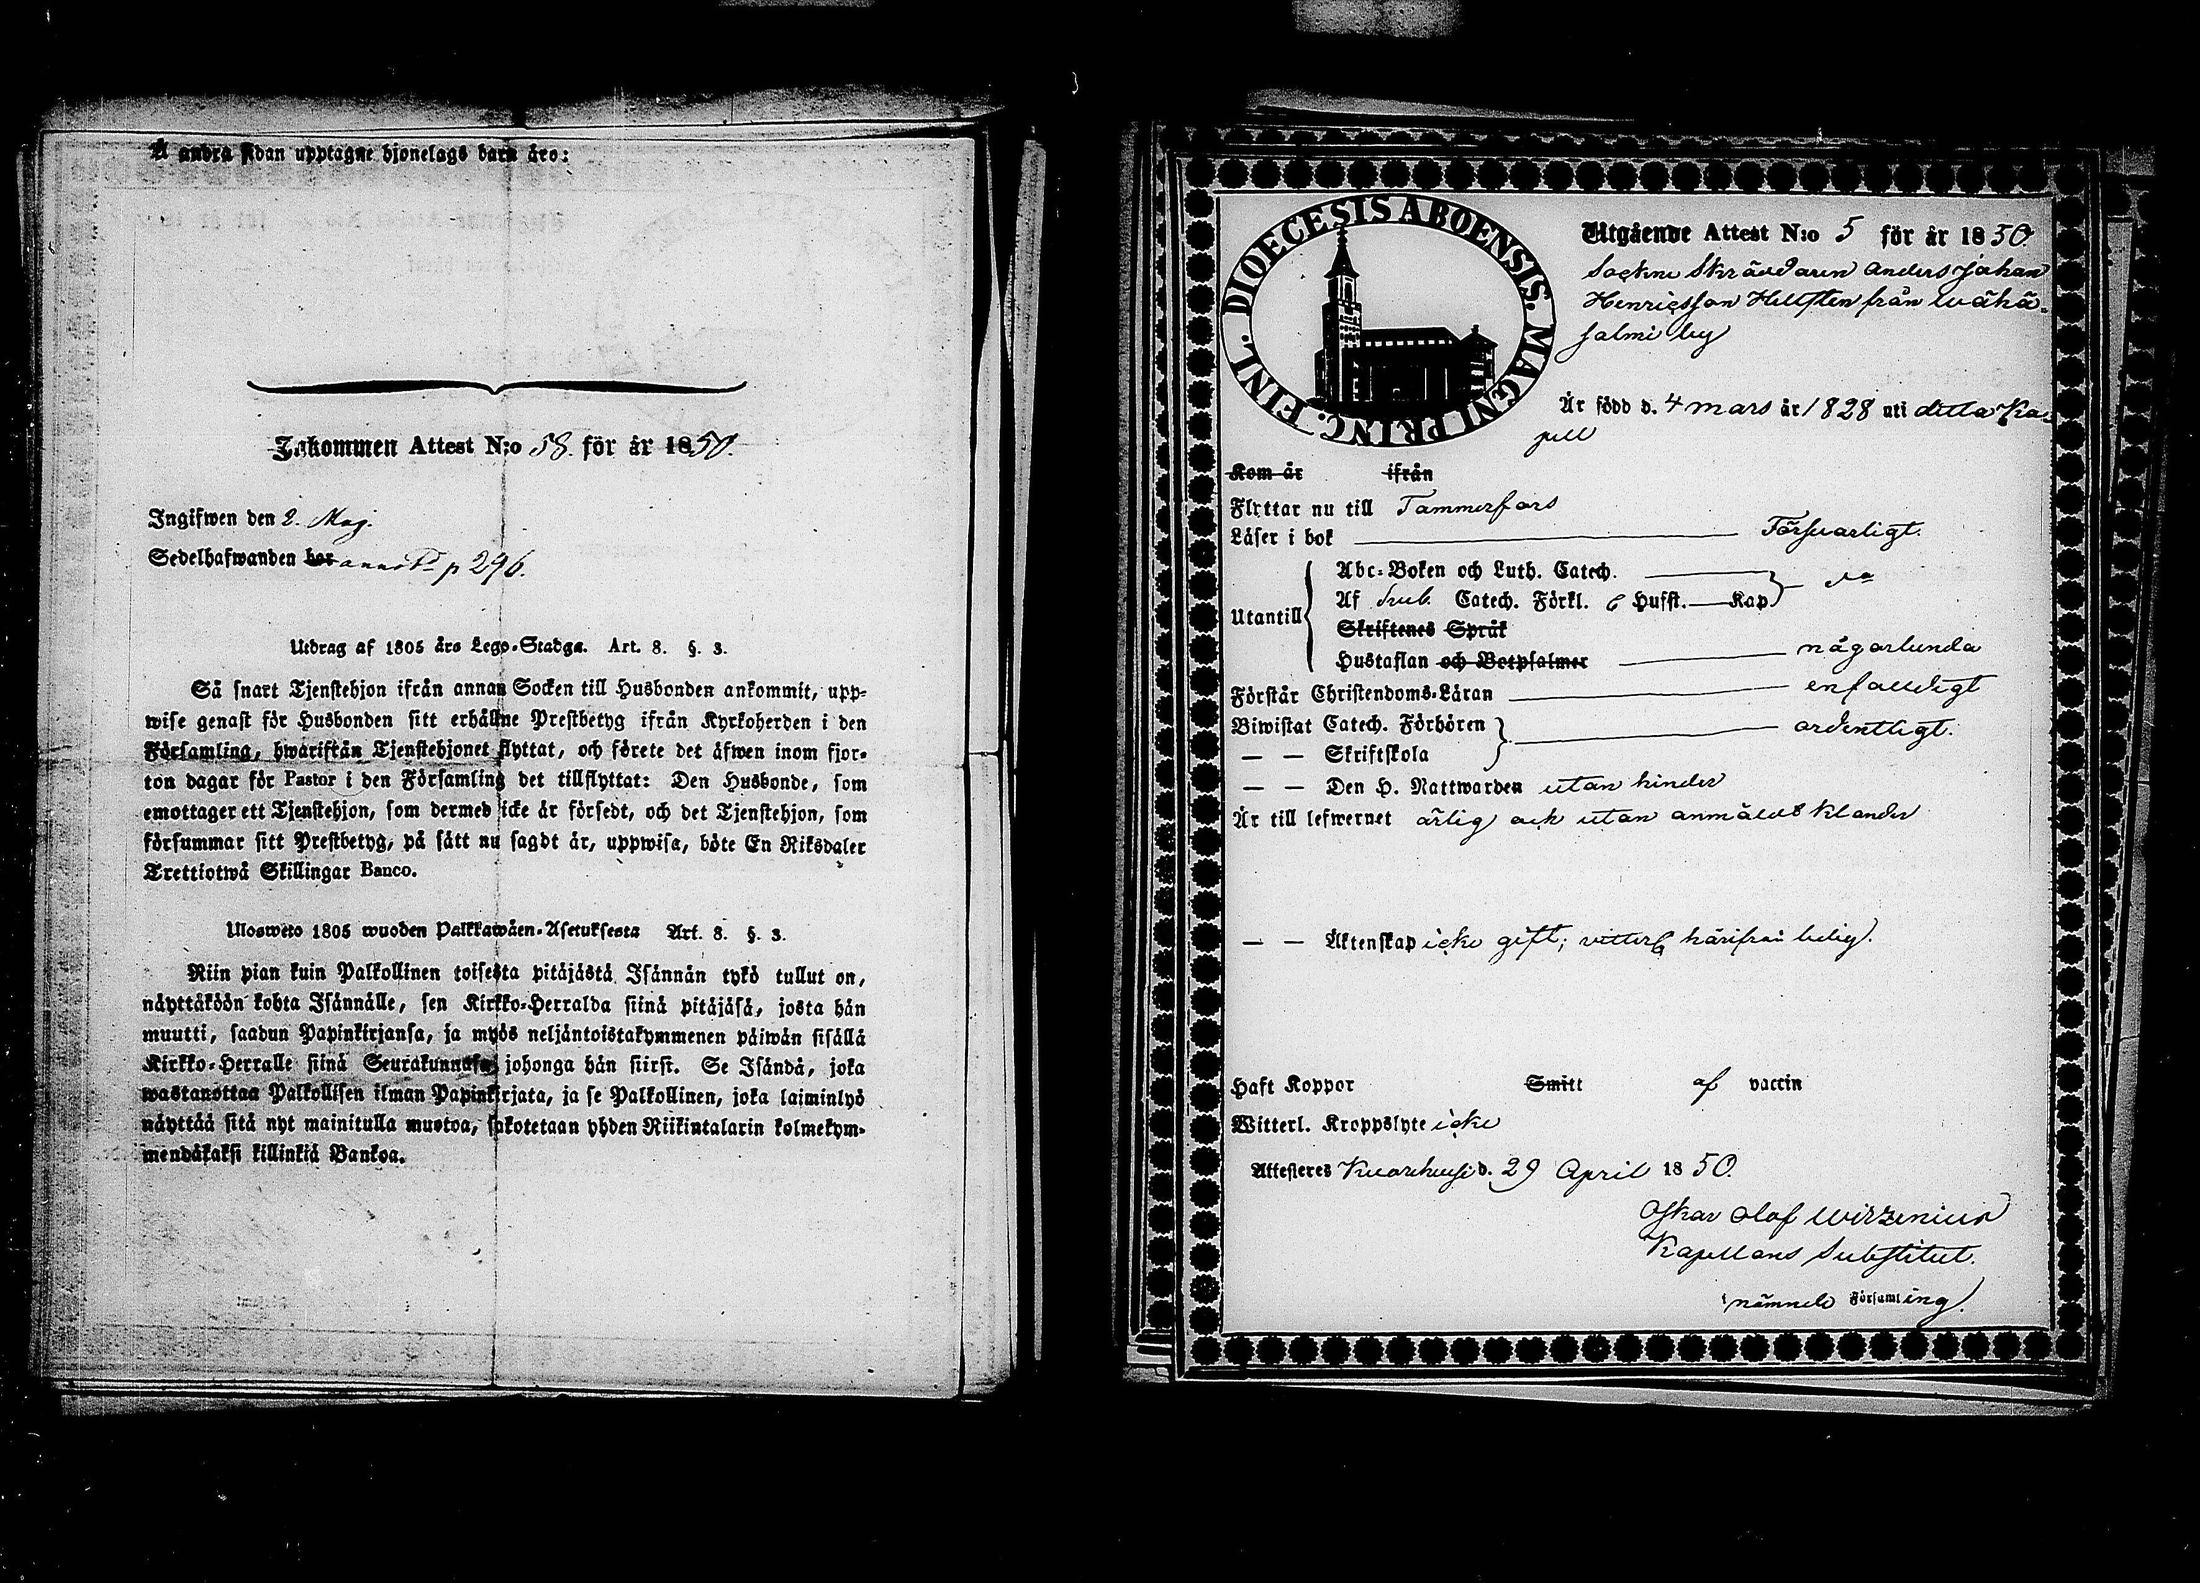 Å andra sidan upptagne hjonelags barn äro:
Inkommen Attest N:o 58. för år 1850.
Ingifwen den 2. Maj.
Sedelhafwanden bor p 296.
Utdrag af 1805 års Lego-Stadga. Art. 8. §. 3.
Så snart Tjenstehjon ifrån annan Socken till Husbonden ankommit, upp-
wise genast för Husbonden sitt erhållne Prestbetyg ifrån Kyrkoherden i den
Församling, hwarifrån Tjenstehjonet flyttat, och förete det äfwen inom fjor-
ton dagar för Pastor i den Församling det tillflyttat: Den Husbonde, som
emottager ett Tjenstehjon, som dermed icke är försedt, och det Tjenstehjon, som
försummar sitt Prestbetyg, på sätt nu sagdt är, uppwisa, böte En Riksdaler
Trettiotwå Skillingar Banco.
Uloswéto 1805 wuoden Palkkawäen-Asetuksesta Art. 8. §. 3.
Niin pian kuin Palkollinen toisesta pitäjästä Isännän tykö tullut on,
näyttäköön kohta Isännälle, sen Kirkko-Herralda siinä pitäjäsä, josta hän
muutti, saadun Papinkirjansa, ja myös neljäntoistakymmenen päiwän sisällä
Kirkko-Herralle siinä Seurakunnasa, johonga hän siirsi. Se Isändä, joka
wastanottaa Palkollisen ilman Papinkirjata, ja se Palkollinen, joka laiminlyö
näyttää sitä nyt mainitulla muotoa, sakotetaan yhden Riikintalarin kolmekym-
mendäkaksi killinkiä Bankoa.
DIOECESIS ABOENSIS. MAGNI PRINC. FINL.
Utgående Attest N:o 5 för år 1850.
Sockne Skräddaren Anders Johan
Henricsson Hellsten från Wähä-
salmi by
Är född d. 4 mars år 1828 uti detta Ka-
pell
Kom år ifrån
Flyttar nu till Tammerfors
Läser i bok Försvarligt.
Abc-Boken och Luth. Catech. do
Utantill Af Sveb. Catech. Förkl. 6 Hufst. Kap
Skriftenes Språk
Hustaflan och Botpsalmer någorlunda
Förstår Christendoms-Läran enfaldigt
Biwistat Catech. Förhören ordentligt.
— — Skriftskola
— — Den H. Nattwarden utan hinder
Är till lefwernet ärlig ock utan anmäldt klander
— — Äktenskap icke gift; vitterl. härifrån ledig.
Haft Koppor Smitt af vaccin
Witterl. Kroppslyte icke
Attesteres Kuorehusi d. 29 April 1850.
Oskar Olof Wirzenius
Kapellans Substitut.
i nämnde Församling.